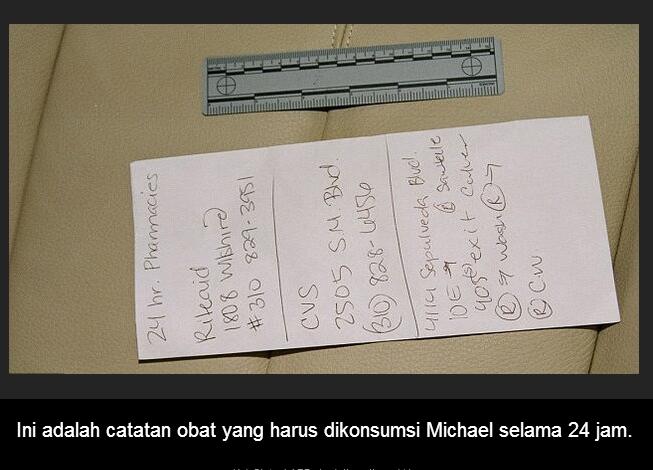 24 hr. Pharmacies
Riteaid
1808 Wilshire
#310 829-3951
CVS
2505 S.M. Blvd.
(310) 828-6456
4114 Sepulveda Blvd.
10E → Sawtelle
405(S) exit Culver
(R) → Wash (R) →
(R) CW
Ini adalah catatan obat yang harus dikonsumsi Michael selama 24 jam.